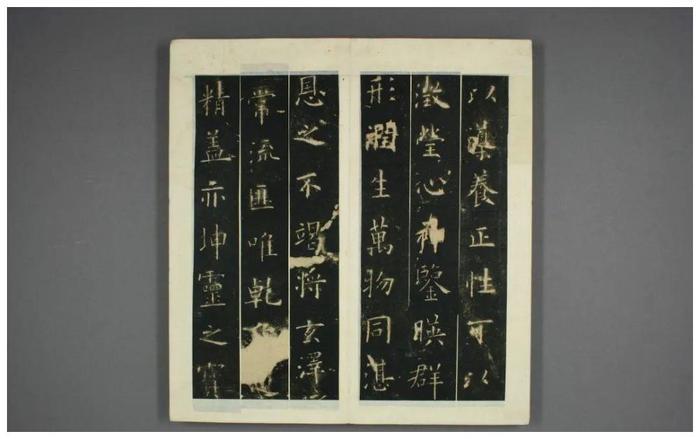 以導養正性可以
澂瑩心神鑒暎群
形潤生萬物同湛
恩之不竭將玄澤
常流匪唯乾
精蓋亦坤靈之寶